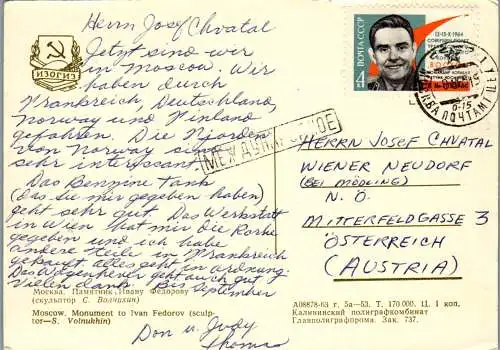 Herrn Josef Chvatal
Jetzt sind wir
in Moscow. Wir
haben durch
Frankreich, Deutschland,
Norway und Finland
gefahren. Die Fjorden
von Norway sind
sehr interessant.
Das Benzine Tank
(Das du mir gegeben haben)
geht sehr gut. Das Werkstatt
in Wien hat mir die Rohre
gegeben und ich habe
andere teile in Frankreich
gekauft. Alles geht in ordnung.
Das Wagenheber geht auch gut
Vielen dank. Bis September
Don u. Judy
Thomas
ИЗОГИЗ
МЕЖДУНАРОДНОЕ
ПОЧТА СССР
4
12-13-X-1964
МОСКВА ПОЧТАМТ
HERRN JOSEF CHVATAL
WIENER NEUDORF
(BEI MÖDLING)
N. Ö.
MITTERFELDGASSE 3
ÖSTERREICH
(AUSTRIA)
Москва. Памятник Ивану Федорову
(скульптор С. Волнухин)
Moscow. Monument to Ivan Fedorov (sculp-
tor—S. Volnukhin)
А08878-63 г. 5а—53. Т. 170 000. Ц. 1 коп.
Калининский полиграфкомбинат
Главполиграфпрома. Зак. 737.